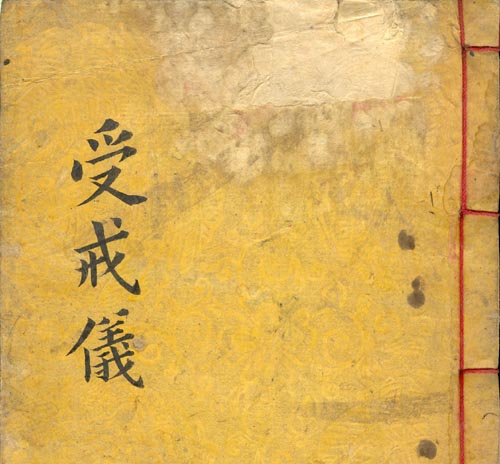 受戒儀